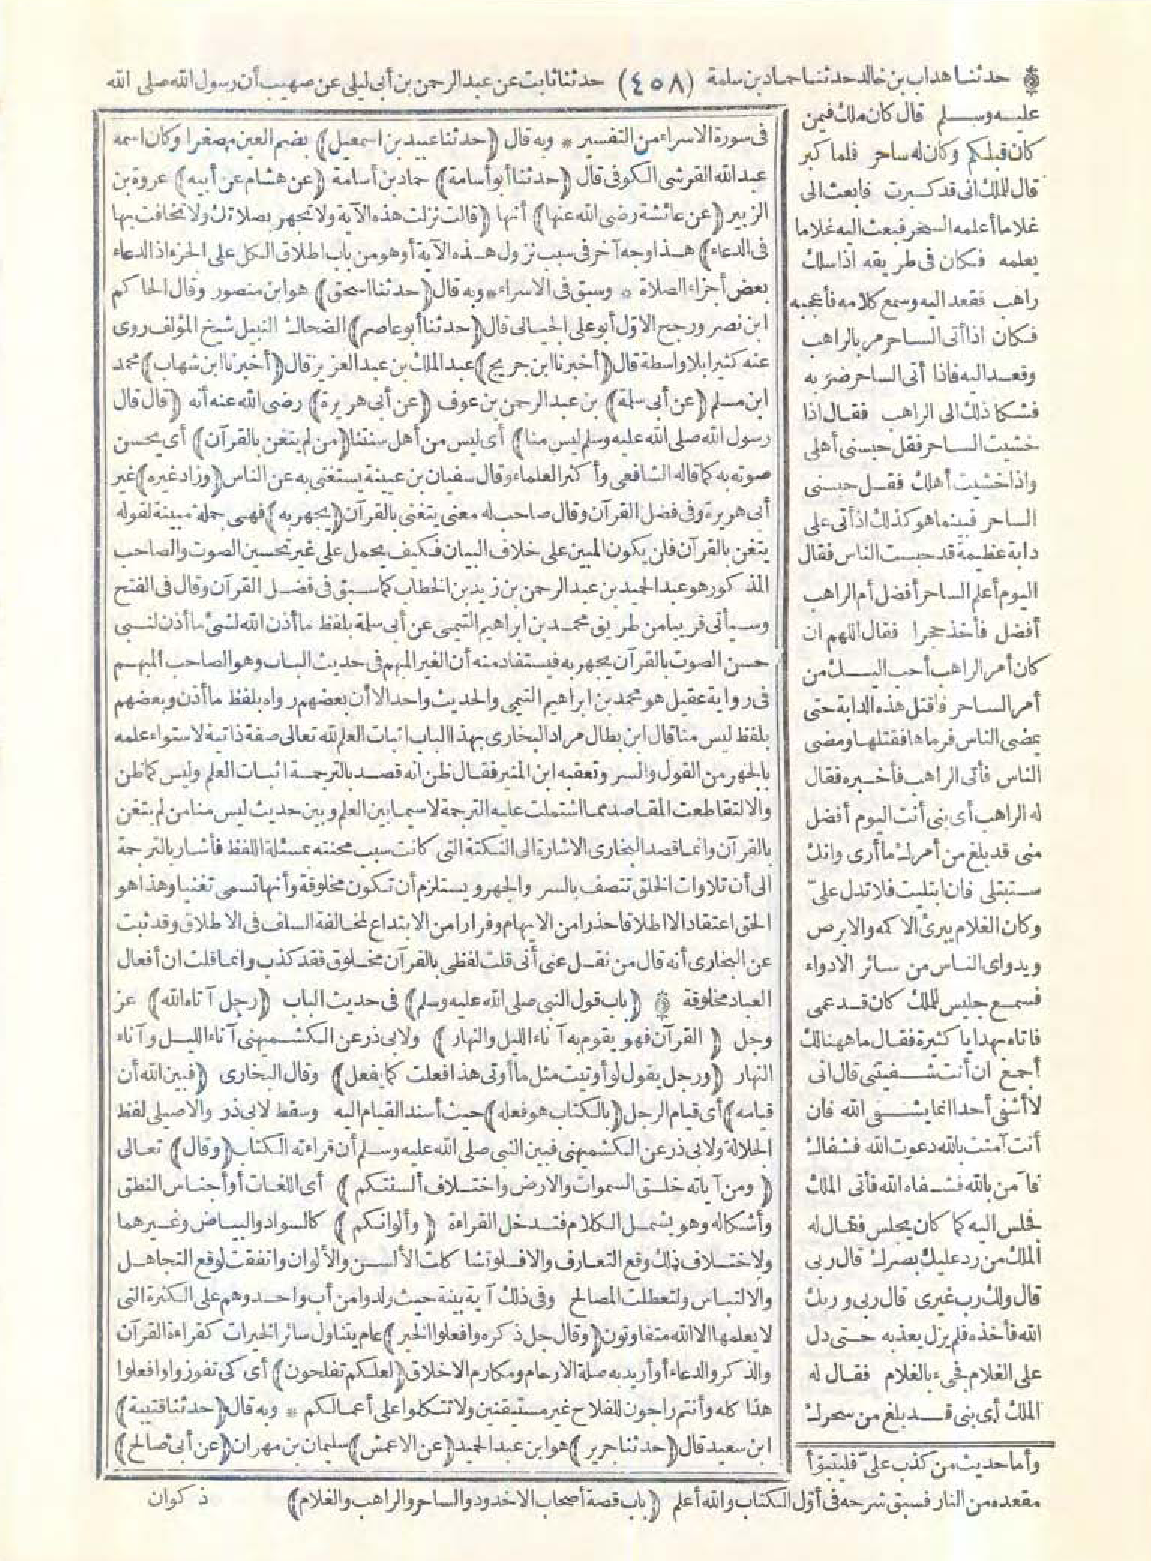 حدثنا هداب بن خالد حدثنا حماد بن سلمة (٤٥٨) حدثنا ثابت عن عبد الرحمن بن أبي ليلى عن صهيب أن رسول الله صلى الله
عليه وسلم قال كان ملك فيمن
كان قبلكم وكان له ساحر فلما كبر
قال للملك انى قد كبرت فابعث الى
غلاما أعلمه السحر فبعث اليه غلاما
يعلمه فكان فى طريقه اذا سلك
راهب فقعد اليه وسمع كلامه فأعجبه
فكان اذا أتى الساحر مر بالراهب
وقعد اليه فاذا أتى الساحر ضربه
فشكا ذلك الى الراهب فقال اذا
خشيت الساحر فقل حبسنى أهلى
واذا خشيت أهلك فقل حبسنى
الساحر فبينما هو كذلك اذ أتى على
دابة عظيمة قد حبست الناس فقال
اليوم أعلم الساحر أفضل أم الراهب
أفضل فأخذ حجرا فقال اللهم ان
كان أمر الراهب أحب اليك من
أمر الساحر فاقتل هذه الدابة حتى
يمضى الناس فرماها فقتلها ومضى
الناس فأتى الراهب فأخبره فقال
له الراهب أى بنى أنت اليوم أفضل
منى قد بلغ من أمرك ما أرى وانك
ستبتلى فان ابتليت فلا تدل علىّ
وكان الغلام يبرئ الاكمه والابرص
ويداوى الناس من سائر الادواء
فسمع جليس للملك كان قد عمى
فاتاه بهدايا كثيرة فقال ما ههنا لك
أجمع ان أنت شفيتنى قال انى
لا أشفى أحدا انما يشفى الله فان
أنت آمنت بالله دعوت الله فشفاك
فآمن بالله فشفاه الله فأتى الملك
فجلس اليه كما كان يجلس فقال له
الملك من رد عليك بصرك قال ربى
قال ولك رب غيرى قال ربى وربك
الله فأخذه فلم يزل يعذبه حتى دل
على الغلام فجىء بالغلام فقال له
الملك أى بنى قد بلغ من سحرك
فى سورة الاسراء من التفسير * وبه قال (حدثنا عبيد بن اسمعيل) بضم العين مصغرا وكان اسمه
عبد الله القرشى الكوفى قال (حدثنا أبو أسامة) حماد بن أسامة (عن هشام عن أبيه) عروة بن
الزبير (عن عائشة رضى الله عنها) أنها (قالت نزلت هذه الآية ولا تجهر بصلاتك ولا تخافت بها
فى الدعاء) هذا وجه آخر فى سبب نزول هذه الآية أو هو من باب اطلاق الكل على الجزء اذ الدعاء
بعض أجزاء الصلاة * وسبق فى الاسراء * وبه قال (حدثنا اسحق) هو ابن منصور وقال الحاكم
ابن نصر ورجح الاوّل أبو على الجيانى قال (حدثنا أبو عاصم) الضحاك النبيل شيخ المؤلف روى
عنه كثيرا بلا واسطة قال (أخبرنا ابن جريج) عبد الملك بن عبد العزيز قال (أخبرنا ابن شهاب) محمد
ابن مسلم (عن أبى سلمة) بن عبد الرحمن بن عوف (عن أبى هريرة) رضى الله عنه أنه (قال قال
رسول الله صلى الله عليه وسلم ليس منا) أى ليس من أهل سنتنا (من لم يتغن بالقرآن) أى يحسن
صوته به كما قاله الشافعى وأكثر العلماء وقال سفيان بن عيينة يستغنى به عن الناس (وزاد غيره) غير
أبى هريرة وفى فضل القرآن وقال صاحب له معنى يتغنى بالقرآن (يجهر به) فهى جملة مبينة لقوله
يتغن بالقرآن فلن يكون المبين على خلاف البيان فكيف يحمل على غير تحسين الصوت والصاحب
المذكور هو عبد الحميد بن عبد الرحمن بن زيد بن الخطاب كما سبق فى فضل القرآن وقال فى الفتح
وسيأتى قريبا من طريق محمد بن ابراهيم التيمى عن أبى سلمة بلفظ ما أذن الله لشئ ما أذن لنبى
حسن الصوت بالقرآن يجهر به فيستفاد منه أن الغير المبهم فى حديث الباب وهو الصاحب المبهم
فى رواية عقيل هو محمد بن ابراهيم التيمى والحديث واحد الا أن بعضهم رواه بلفظ ما أذن وبعضهم
بلفظ ليس منا قال ابن بطال مراد البخارى بهذا الباب اثبات العلم لله تعالى صفة ذاتية لاستواء علمه
بالجهر من القول والسر وتعقبه ابن المنير فقال ظن أنه قصد بالترجمة اثبات العلم وليس كما ظن
والا لتقاطعت المقاصد مما اشتملت عليه الترجمة لا سيما بين العلم وبين حديث ليس منا من لم يتغن
بالقرآن وانما قصد البخارى الاشارة الى النكتة التى كانت سبب محنته بمسئلة اللفظ فأشار بالترجمة
الى أن تلاوات الخلق تتصف بالسر والجهر ويستلزم أن تكون مخلوقة وأنها تسمى تغنيا وهذا هو
الحق اعتقادا لا اطلاقا حذرا من الايهام وفرارا من الابتداع لمخالفة السلف فى الاطلاق وقد ثبت
عن البخارى أنه قال من نقل عنى أنى قلت لفظى بالقرآن مخلوق فقد كذب وانما قلت ان أفعال
العباد مخلوقة (باب قول النبى صلى الله عليه وسلم) فى حديث الباب (رجل آتاه الله) عز
وجل (القرآن فهو يقوم به آناء الليل والنهار) ولابى ذر عن الكشميهنى آناء الليل وآناء
النهار (ورجل يقول لو أوتيت مثل ما أوتى هذا فعلت كما يفعل) وقال البخارى (فبين الله أن
قيامه) أى قيام الرجل (بالكتاب هو فعله) حيث أسند القيام اليه وسقط لابى ذر والاصيلى لفظ
الجلالة ولابى ذر عن الكشميهنى فبين النبى صلى الله عليه وسلم أن قراءته الكتاب (وقال) تعالى
(ومن آياته خلق السموات والارض واختلاف ألسنتكم) أى اللغات أو أجناس النطق
وأشكاله وهو يشمل الكلام فتدخل القراءة (وألوانكم) كالسواد والبياض وغيرهما
ولاختلاف ذلك وقع التعارف والا فلو تشاكلت الألسن والألوان واتفقت لوقع التجاهل
والالتباس ولتعطلت المصالح وفى ذلك آية بينة حيث ولدوا من أب واحد وهم على الكثرة التى
لا يعلمها الا الله متفاوتون (وقال جل ذكره وافعلوا الخير) عام يتناول سائر الخيرات كقراءة القرآن
والذكر والدعاء أو أريد به صلة الارحام ومكارم الاخلاق (لعلكم تفلحون) أى كى تفوزوا وافعلوا
هذا كله وأنتم راجون للفلاح غير مستيقنين ولا تتكلوا على أعمالكم * وبه قال (حدثنا قتيبة)
ابن سعيد قال (حدثنا جرير) هو ابن عبد الحميد (عن الاعمش) سليمان بن مهران (عن أبى صالح)
وأما حديث من كذب علىّ فليتبوّأ
مقعده من النار فسبق شرحه فى أوّل الكتاب والله أعلم (باب قصة أصحاب الاخدود والساحر والراهب والغلام)
ذكوان